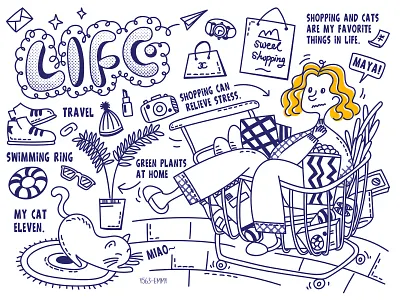 LIFE
Sweet
Shopping
SHOPPING AND CATS
ARE MY FAVORITE
THINGS IN LIFE.
MAYA!
SHOPPING CAN
RELIEVE STRESS.
TRAVEL
SWIMMING RING
GREEN PLANTS
AT HOME
MY CAT
ELEVEN.
MIAO~